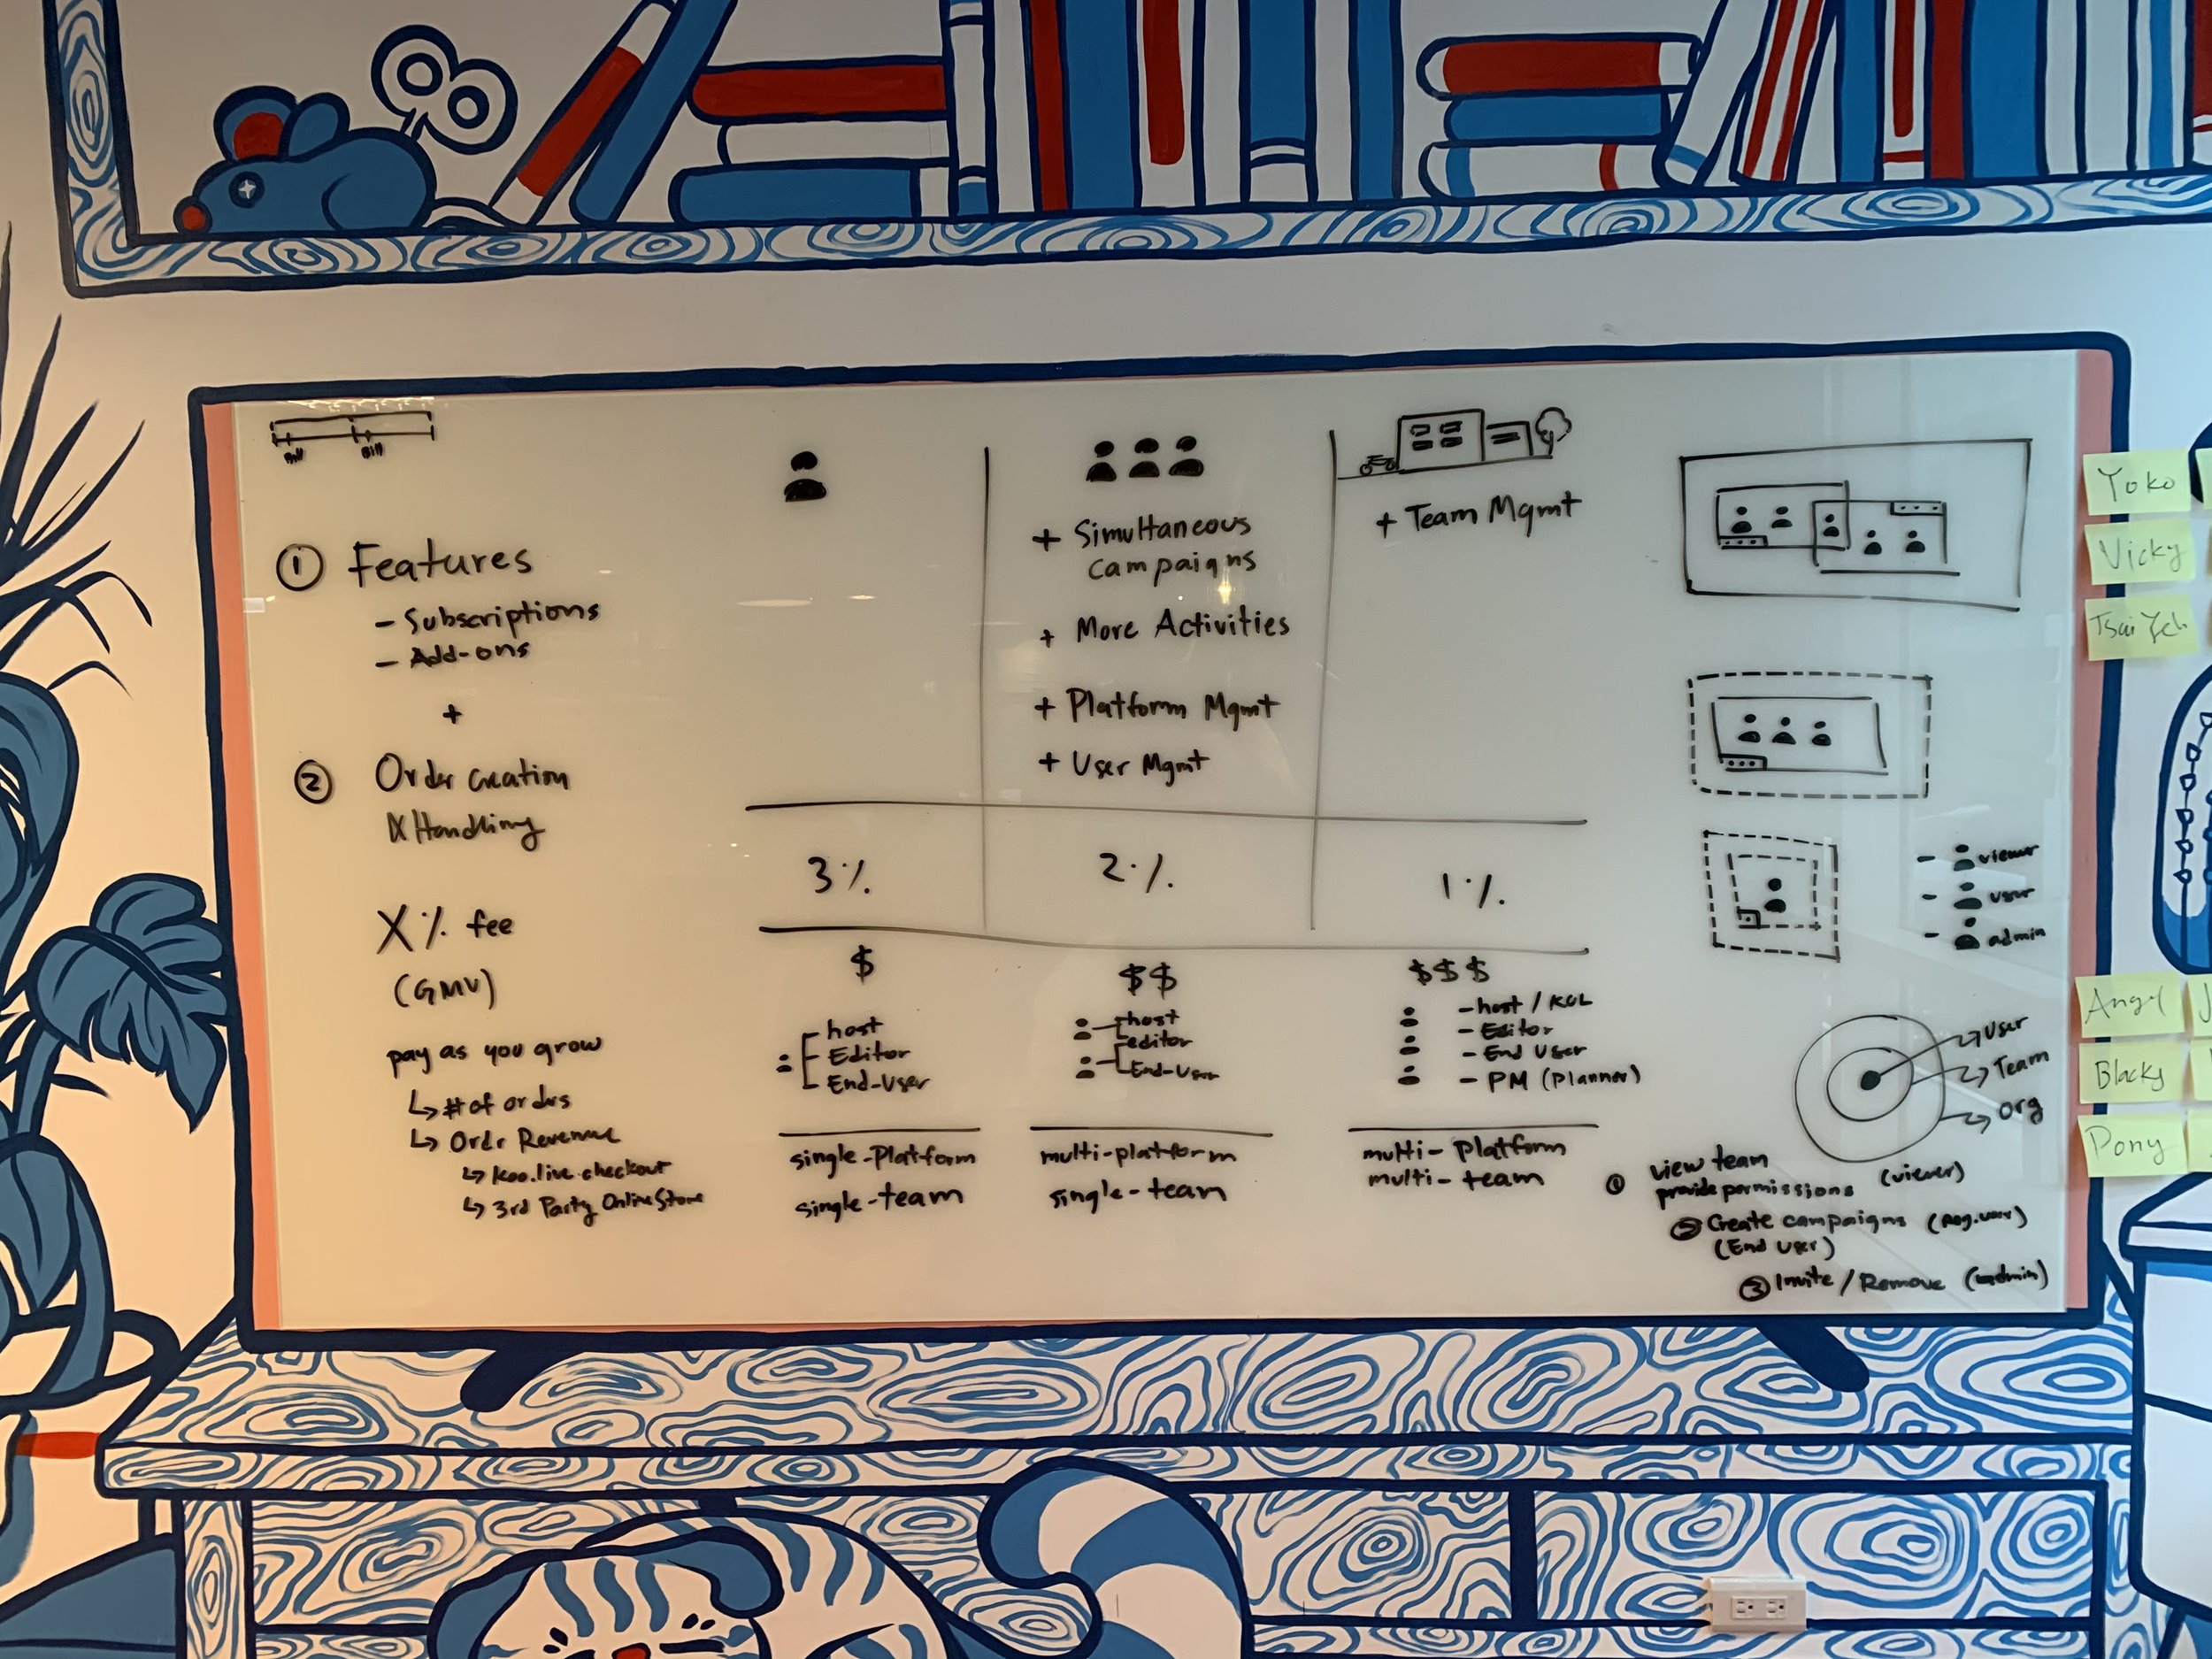 Bill
Bill
① Features
- Subscriptions
- Add-ons
+
② Order creation
& Handling
X % fee
(GMV)
pay as you grow
↳ # of orders
↳ Order Revenue
↳ Koo.live checkout
↳ 3rd Party Online Store
3%
$
host
Editor
End-User
single-Platform
single-team
+ Simultaneous
campaigns
+ More Activities
+ Platform Mgmt
+ User Mgmt
2%
$$
host
editor
End-User
multi-platform
single-team
+ Team Mgmt
1%
$$$
- host / KOL
- Editor
- End User
- PM (Planner)
multi-Platform
multi-team
- viewer
- user
- admin
User
Team
Org
① view team
provide permissions (viewer)
② Create campaigns
(End User)
③ Invite / Remove (admin)
Yoko
Vicky
Tsai Yeh
Angel
Blacky
Pony